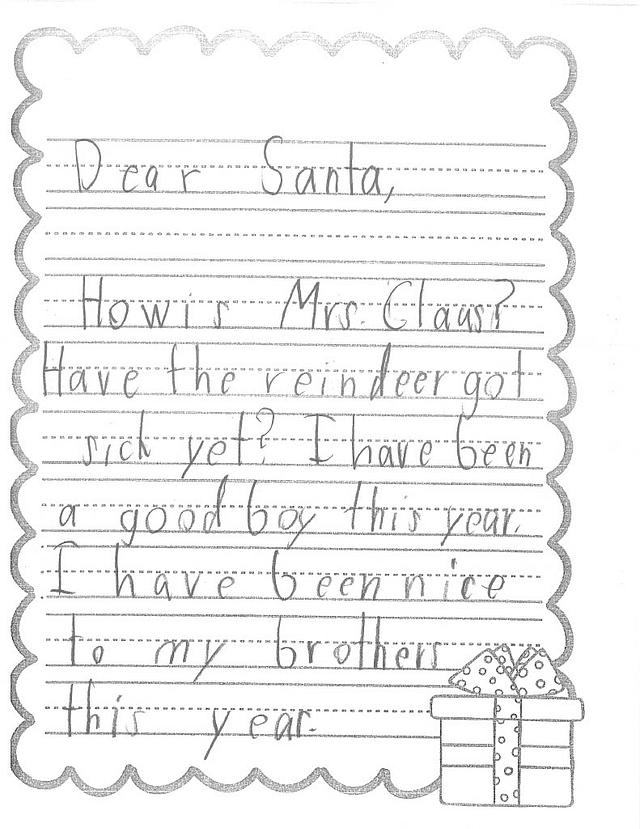 Dear Santa,
How is Mrs. Claus?
Have the reindeer got
sick yet? I have been
a good boy this year.
I have been nice
to my brothers
this year.